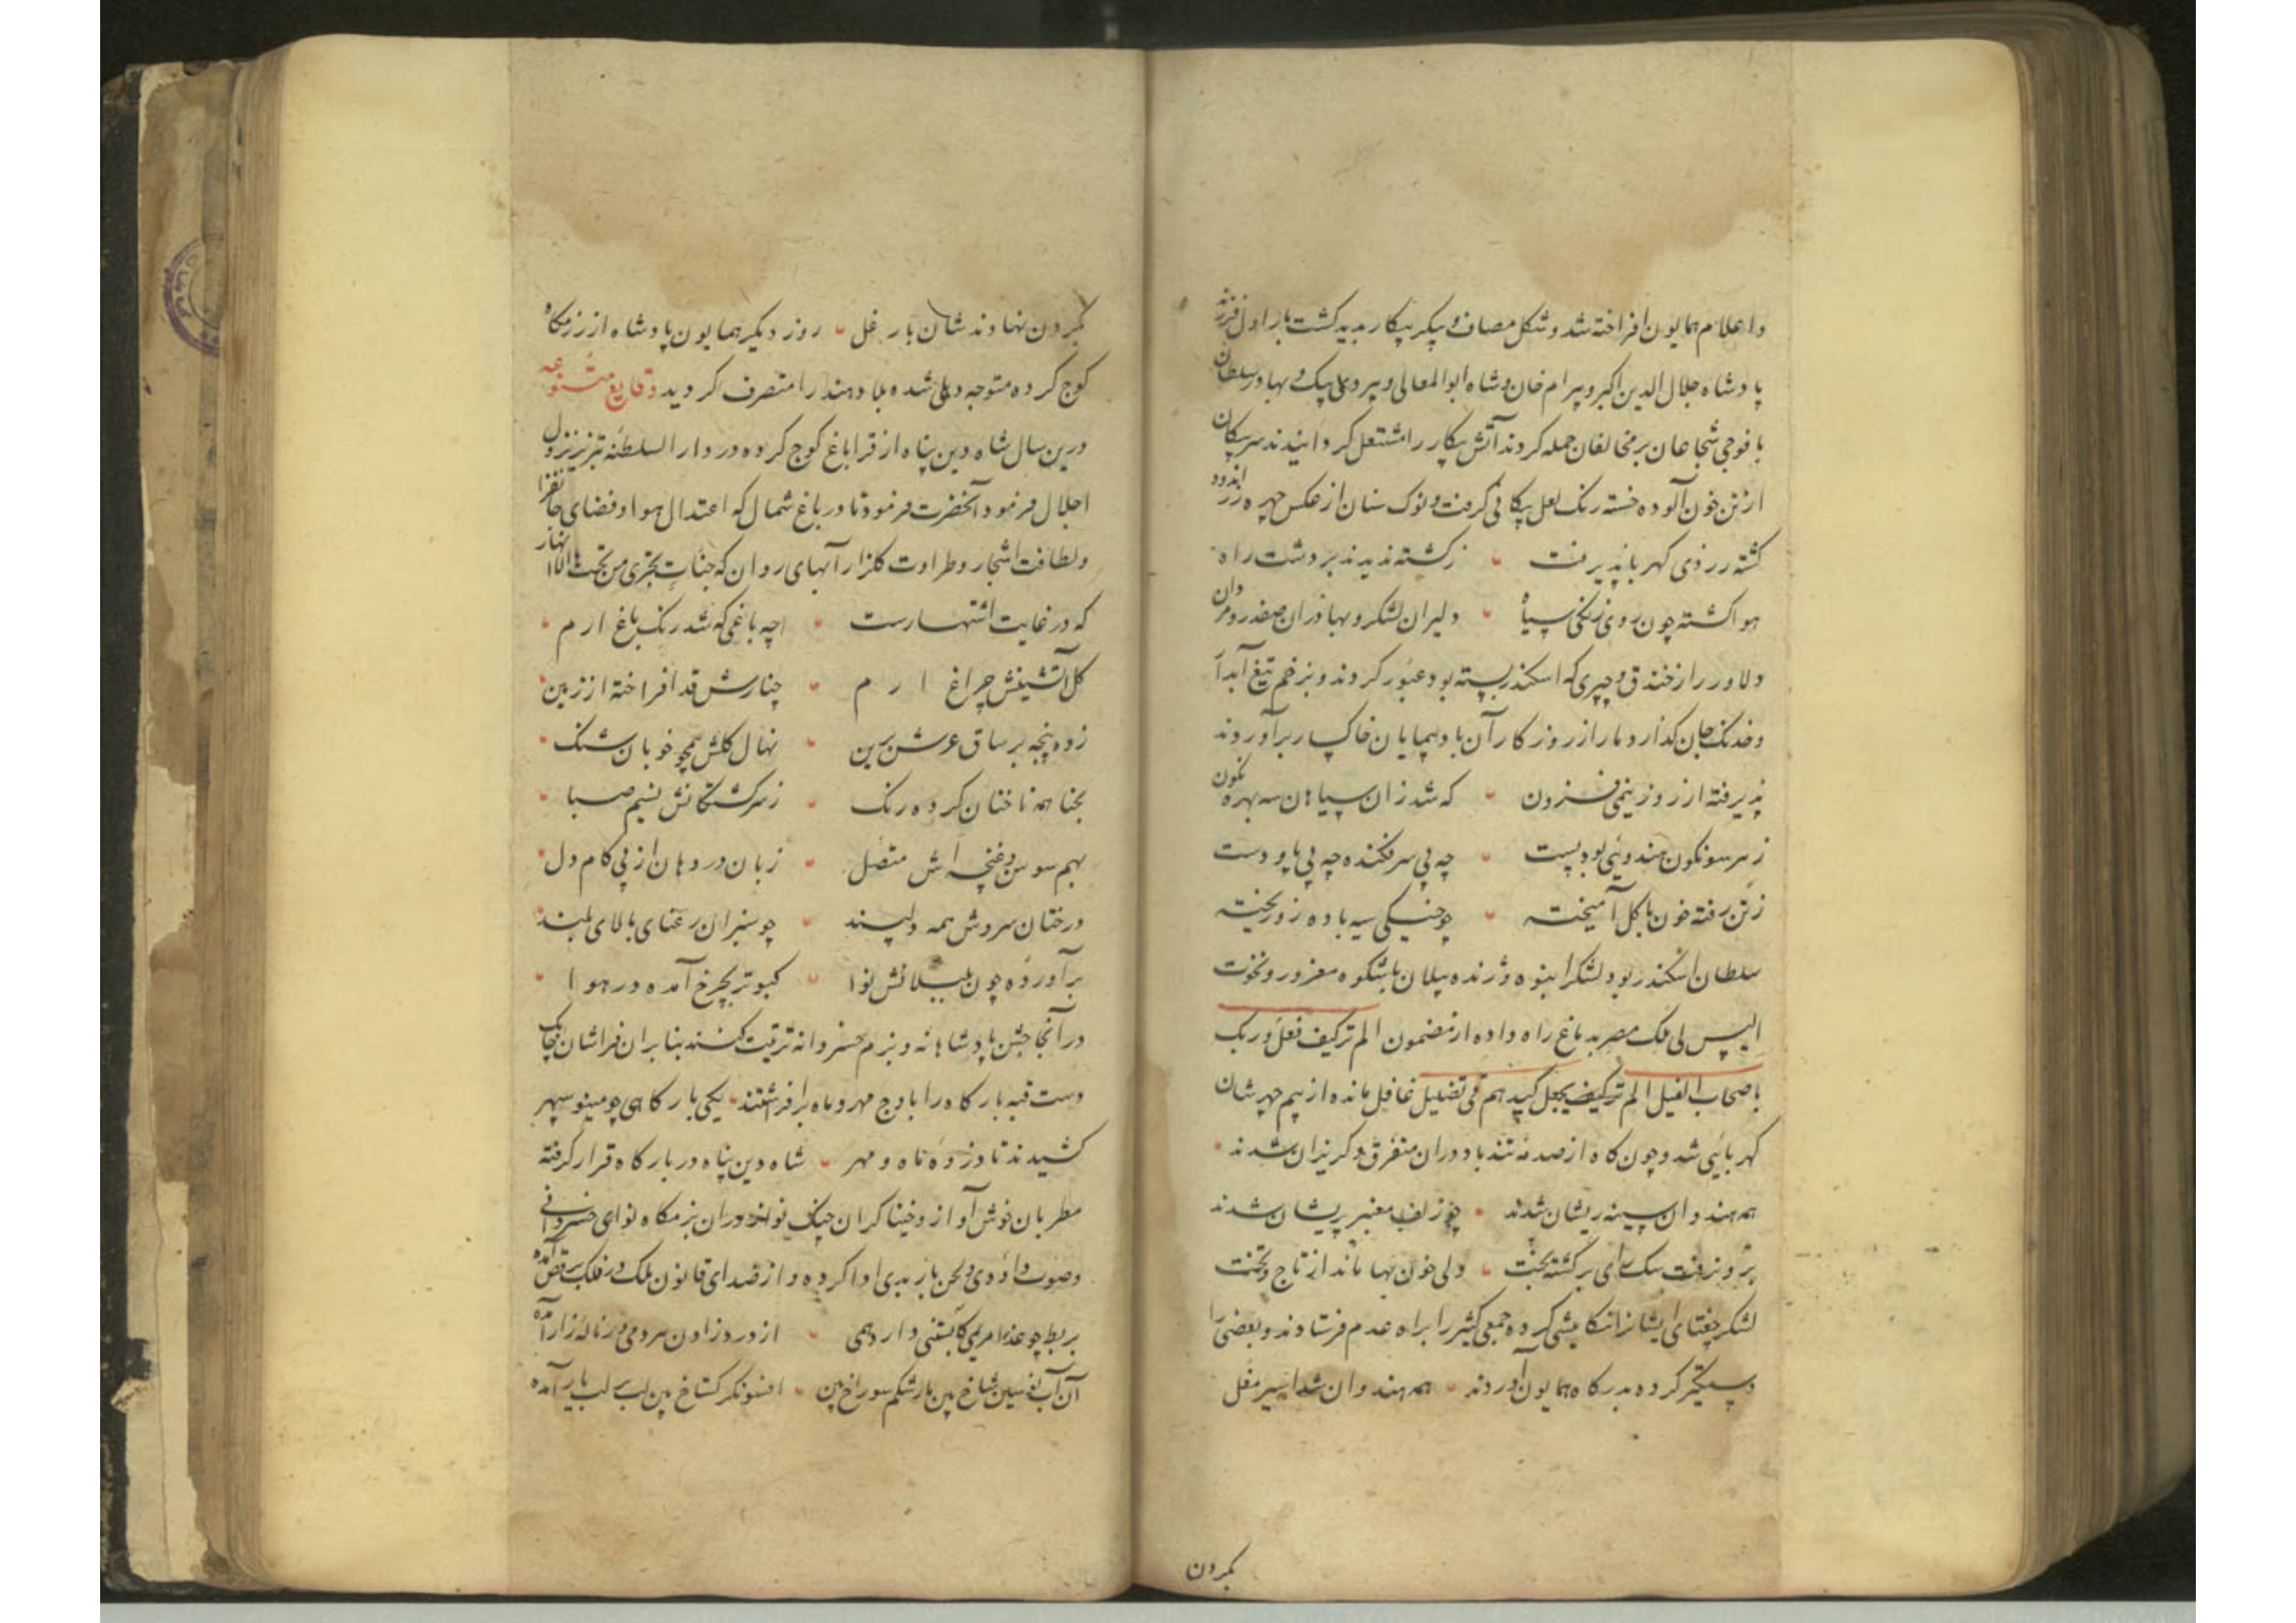 و اعلام همایون افراخته شد و شکل مصاف و پیکر پیکار پدید گشت بار اول فرزند
پادشاه جلال الدین اکبر و بیرام خان و شاه ابوالمعالی و پیر و علی بیک و بهادر سلطان
با فوجی شجاعان بر مخالفان حمله کردند آتش پیکار را مشتعل گردانیدند سر پیکان
از تن خون آلوده خسته رنگ لعل پیکانی گرفت و نوک سنان از عکس چهره زراندود
کشته زردی کهربا پذیرفت زکشته ندیدند بر دشت راه
هوا کشته چون روی زنکی سیاه دلیران لشکر و بهادران صفدر و مردان
دلاور را از خندق و چپری که اسکندر بسته بود عبور کردند و بزخم تیغ آبدار
و خدنک جان کداز دمار از روزکار آن باد پیمایان خاکسار برآوردند
پذیرفته از روز نیمی فزون که شد زان سپاهان سه بهره نکون
ز سر سونکون هندوئی بود پست چه بی سر فکنده چه بی پا و دست
ز تن رفته خون با کل آمیخته چو خیکی سیه باده زو ریخته
سلطان اسکندر بود لشکر انبوه و ژنده پیلان باشکوه مغرور و نخوت
الیس لی ملک مصر بدماغ راه داده از مضمون الم تر کیف فعل ربک
باصحاب الفیل الم یجعل کیدهم فی تضلیل غافل مانده از بیم چهرشان
کهربایی شد و چون کاه از صدمه تند باد دوران متفرق و کریزان شدند
همه هندوان سینه ریشان شدند چو زلف معنبر پریشان شدند
برون رفت سک رای برکشته بخت ولی خون بها ماند از تاج و تخت
لشکر جغتای ایشانرا تکامیشی کرده جمعی کثیر را براه عدم فرستادند و بعضی را
دستکیر کرده بدرکاه همایون آوردند همه هندوان شد اسیر مغل
بکردن
بکردن نهادند شان بار غل روز دیکر همایون پادشاه از رزمکاه
کوچ کرده متوجه دهلی شده بلاد هند را متصرف کردید وقایع متنوعه
درین سال شاه دین پناه از قراباغ کوچ کرده در دار السلطنه تبریز نزول
اجلال فرمود آنحضرت فرمود تا در باغ شمال که اعتدال هوا و فضای جانفزا
و لطافت اشجار و طراوت کلزار آبهای روان که جنات تجری من تحتها الانهار
که در غایت اشتهارست چه باغی که شد رنک باغ ارم
کل آتشینش چراغ ارم چنارش قد افراخته از زمین
زده پنجه بر ساق عرش برین نهال کلش همچو خوبان شنک
بحنا همه ناخنان کرده رنک ز سرکشتکانش نسیم صبا
بهم سوسن و غنچه اش متصل زبان در دهان از پی کام دل
درختان سروش همه دلپسند چو سبزان رعنای بالای بلند
برآورده چون بلبلانش نوا کبوتر بچرخ آمده در هوا
در آنجا جشن پادشاهانه و بزم خسروانه ترتیب کنند بنابران فراشان چابک
دست قبه بارکاه را باوج مهر و ماه برافراشتند یکی بارکاهی چو مینو سپهر
کشیدند تا ذروه ماه و مهر شاه دین پناه در بارکاه قرار کرفته
مطربان خوش آواز و خنیاکران چنک نواز دران بزمکاه نوای خسروانی
و صوت داودی و لحن باربدی ادا کرده و از صدای قانون ملک در فلک برقص آمده
بربط چو عذرا مریمی کابستنی دارد همی از درد زادن هر دمی در ناله زار آمده
آن آب نفسین شاخ بین مار شکم سوراخ بین افسونکر کستاخ بین لب بر لب یار آمده